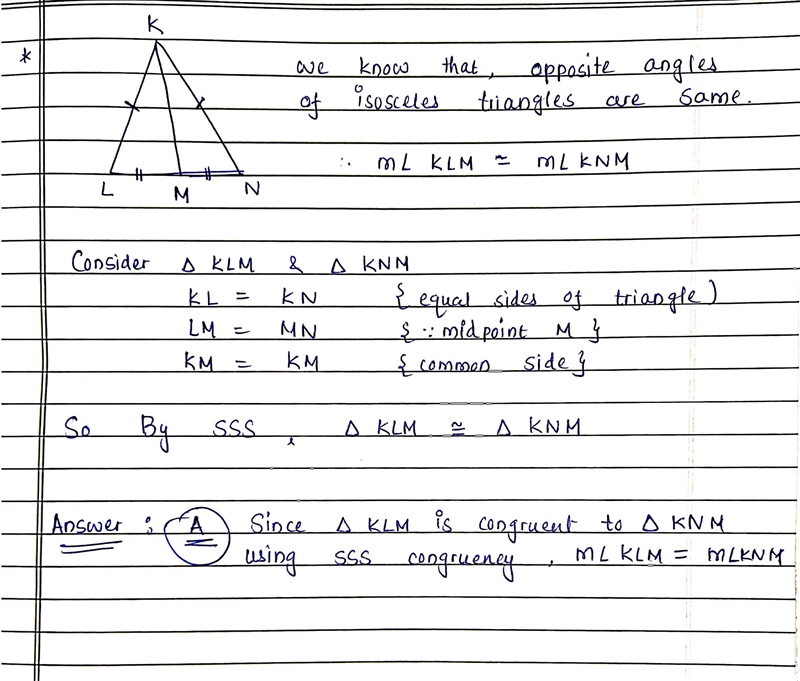 *
K
L
M
N
we know that, opposite angles
of isosceles triangles are same.
∴ m∠ KLM ≃ m∠ KNM
Consider △ KLM & △ KNM
KL = KN { equal sides of triangle )
LM = MN { ∵ midpoint M }
KM = KM { common side }
So By SSS, △ KLM ≅ △ KNM
Answer : A Since △ KLM is congruent to △ KNM
using SSS congruency, m∠ KLM = m∠KNM